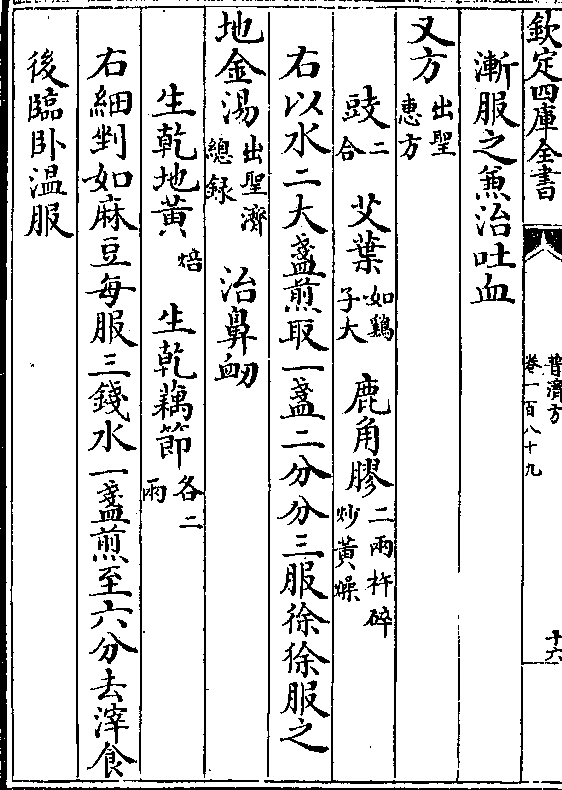 欽定四庫全書
普濟方
卷一百八十九
十六
漸服之兼治吐血
又方出聖惠方
豉二合 艾葉如鷄子大 鹿角膠二兩杵碎炒黃燥
右以水二大盞煎取一盞二分分三服徐徐服之
地金湯出聖濟總録 治鼻衂
生乾地黃焙 生乾藕節各二兩
右細剉如麻豆每服三錢水一盞煎至六分去滓食
後臨卧温服